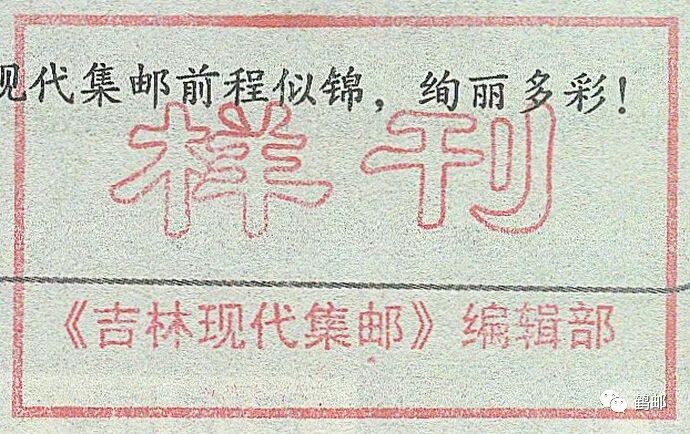 现代集邮前程似锦，绚丽多彩！
样刊
《吉林现代集邮》编辑部
鹤邮